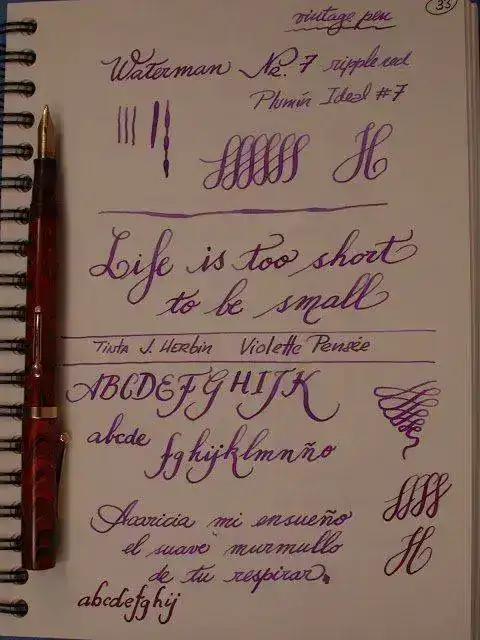 33
vintage pen
Waterman No. 7 ripple red
Plumín Ideal #7
H
Life is too short
to be small
Tinta J. Herbin Violette Pensée
ABCDEFGHIJK
abcde
fghijklmnño
Acaricia mi ensueño
el suave murmullo
de tu respirar.
H
abcdefghij